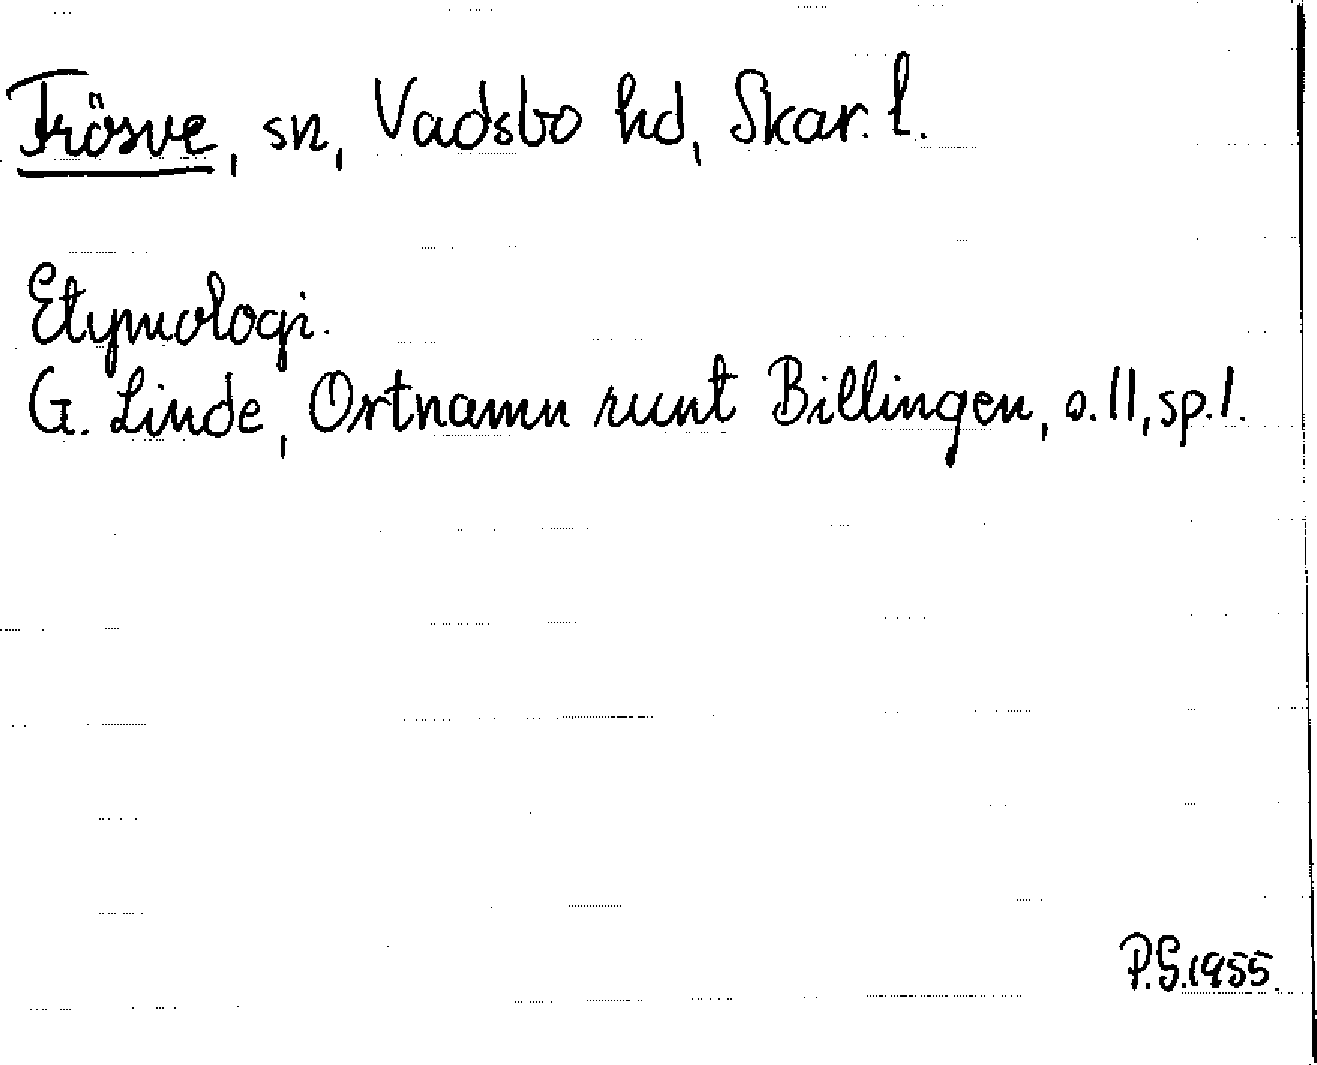 Frösve, sn, Vadsbo hd, Skar. l.
Etymologi.
G. Linde, Ortnamn runt Billingen, s. 11, sp. 1.
P.G. 1955.